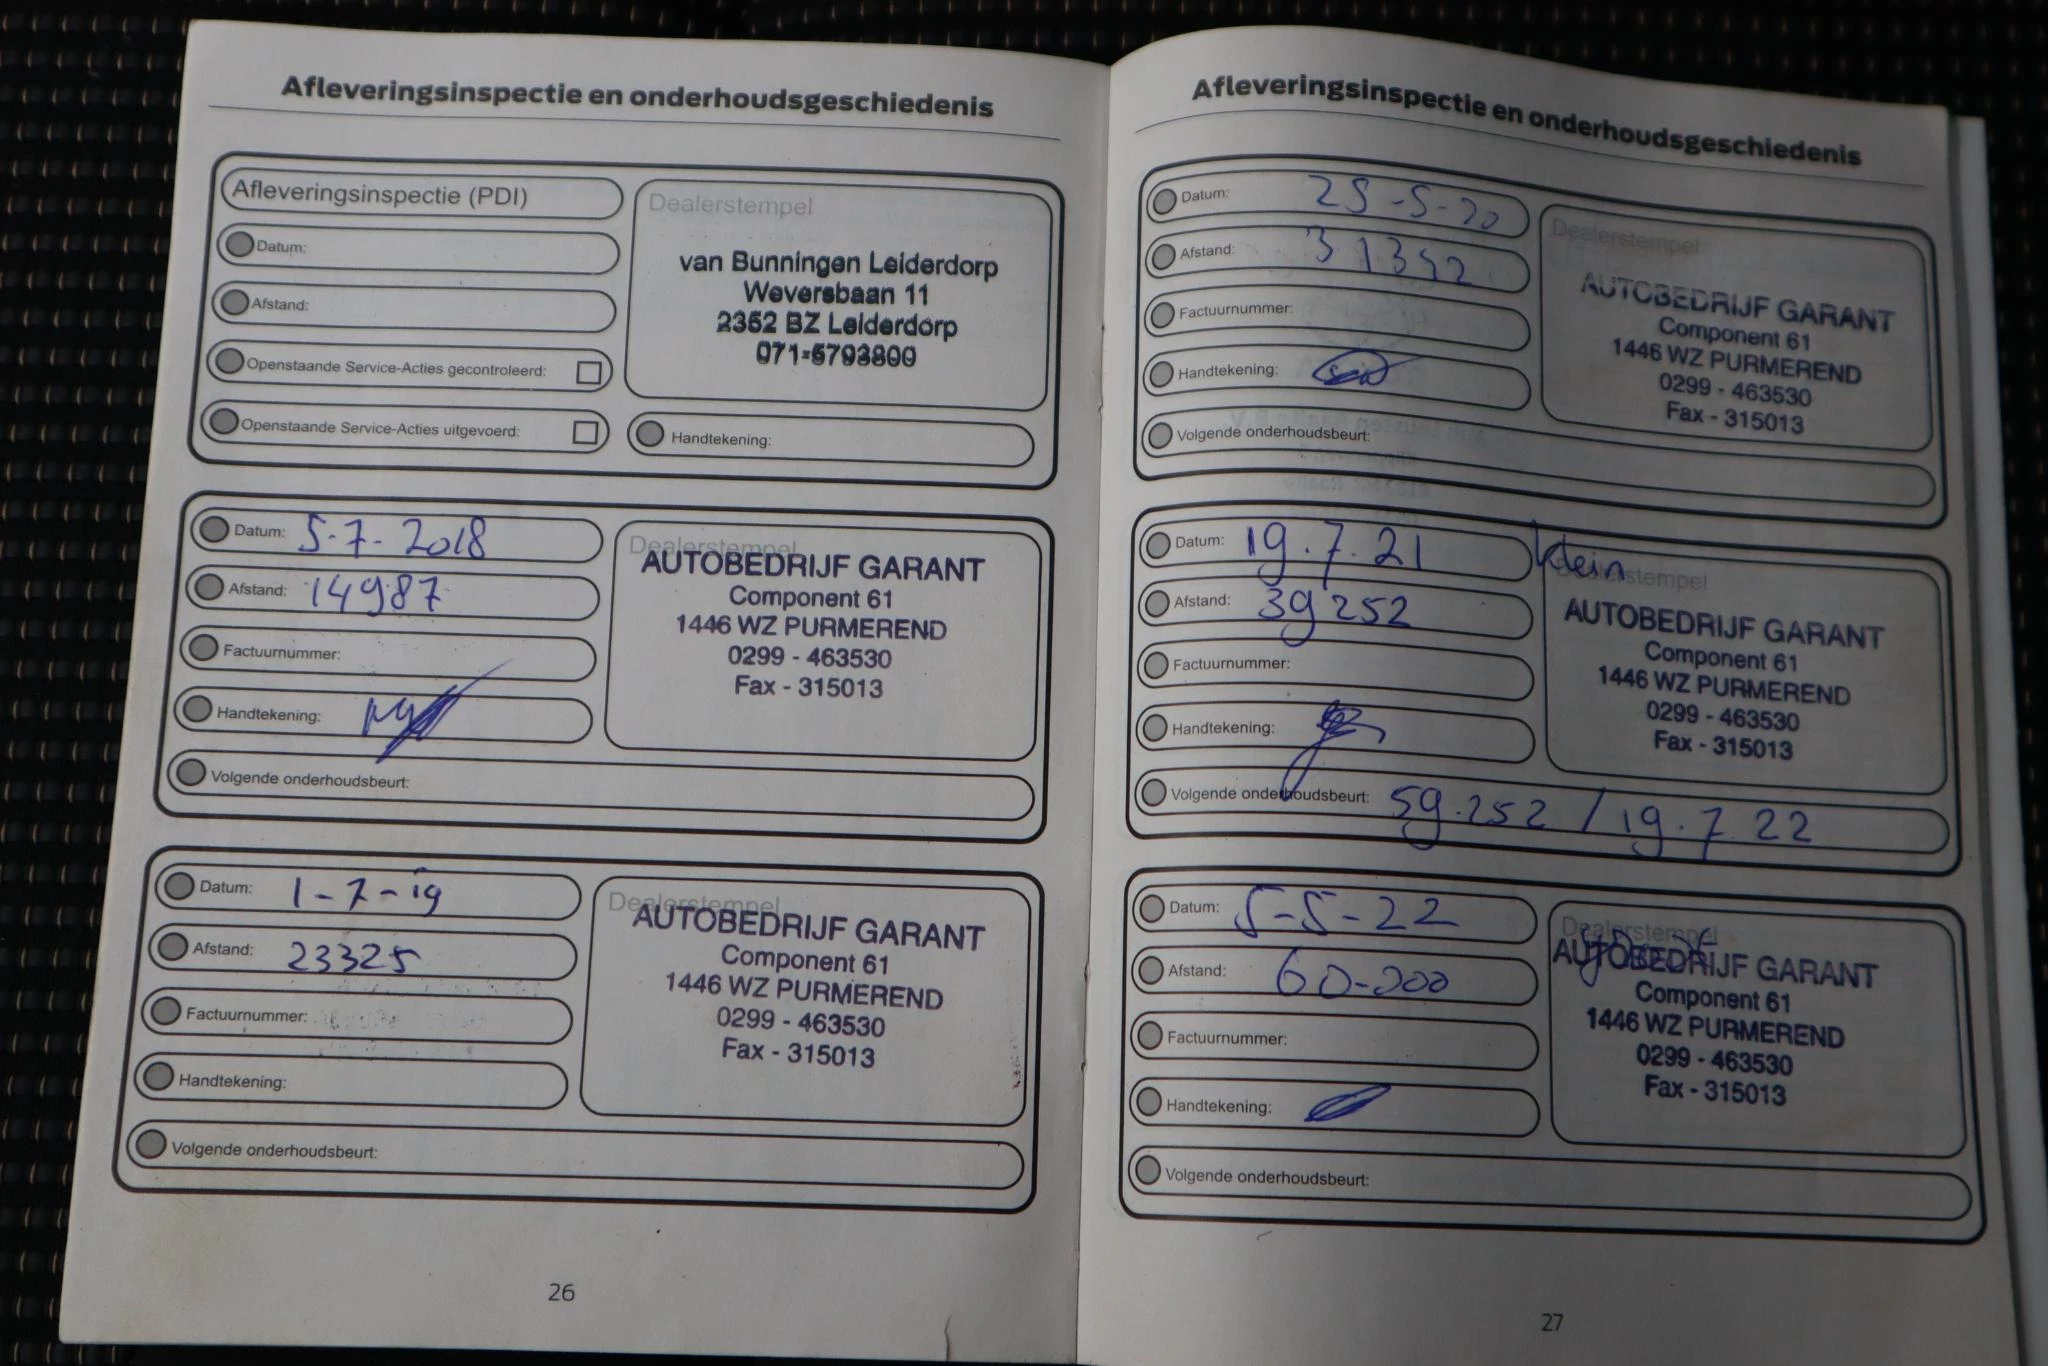 Afleveringsinspectie en onderhoudsgeschiedenis
Afleveringsinspectie (PDI)
Datum:
Afstand:
Openstaande Service-Acties gecontroleerd:
Openstaande Service-Acties uitgevoerd:
Dealerstempel
van Bunningen Leiderdorp
Weversbaan 11
2352 BZ Leiderdorp
071-5793800
Handtekening:
Datum: 5-7-2018
Afstand: 14987
Factuurnummer:
Handtekening:
Volgende onderhoudsbeurt:
Dealerstempel
AUTOBEDRIJF GARANT
Component 61
1446 WZ PURMEREND
0299 - 463530
Fax - 315013
Datum: 1-7-19
Afstand: 23325
Factuurnummer:
Handtekening:
Volgende onderhoudsbeurt:
Dealerstempel
AUTOBEDRIJF GARANT
Component 61
1446 WZ PURMEREND
0299 - 463530
Fax - 315013
26
Afleveringsinspectie en onderhoudsgeschiedenis
Datum: 25-5-20
Afstand:
Factuurnummer:
Handtekening:
Volgende onderhoudsbeurt:
Dealerstempel
AUTOBEDRIJF GARANT
Component 61
1446 WZ PURMEREND
0299 - 463530
Fax - 315013
Datum: 19.7.21
Afstand: 39252
Factuurnummer:
Handtekening:
Volgende onderhoudsbeurt: 59.252 / 19.7.22
klein
Dealerstempel
AUTOBEDRIJF GARANT
Component 61
1446 WZ PURMEREND
0299 - 463530
Fax - 315013
Datum: 5-5-22
Afstand: 60-000
Factuurnummer:
Handtekening:
Volgende onderhoudsbeurt:
Dealerstempel
AUTOBEDRIJF GARANT
Component 61
1446 WZ PURMEREND
0299 - 463530
Fax - 315013
27